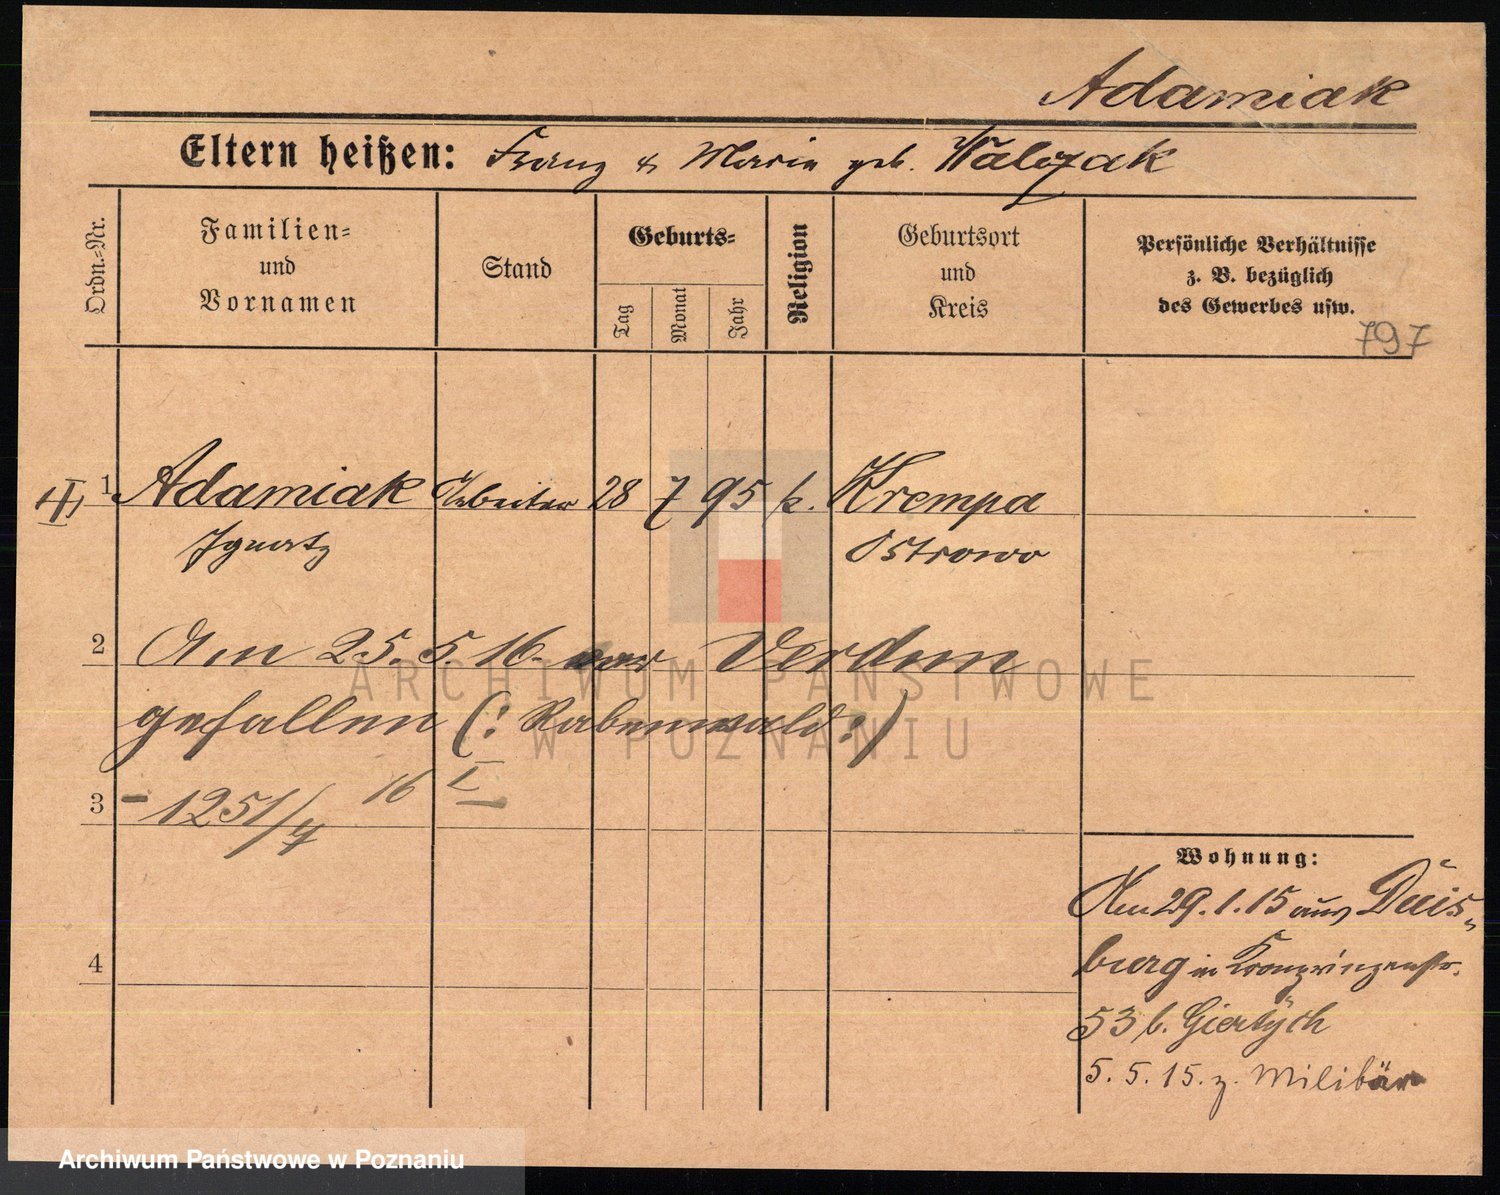 Adamiak
Eltern heißen: Franz & Maria geb. Walczak
Ordn.-Nr.
Familien- und Vornamen
Stand
Geburts-
Tag
Monat
Jahr
Religion
Geburtsort und Kreis
Persönliche Verhältnisse
z. B. bezüglich
des Gewerbes usw.
797
1 Adamiak Arbeiter 28 7 95 k. Krempa
Ignatz Ostrowo
2 Am 25.5.16. vor Verdun
gefallen (: Rabenwald :)
3 - 1251/4 16 I
4
Wohnung:
Am 29.1.15 aus Duis-
burg in Kronprinzenstr.
53 b. Giertych
5.5.15. z. Militär
ARCHIWUM PAŃSTWOWE
W POZNANIU
Archiwum Państwowe w Poznaniu